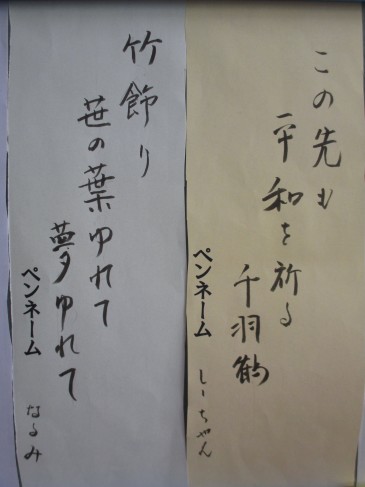 この先も
平和を祈る
千羽鶴
ペンネーム しーちゃん
竹飾り
笹の葉ゆれて
夢ゆれて
ペンネーム なるみ